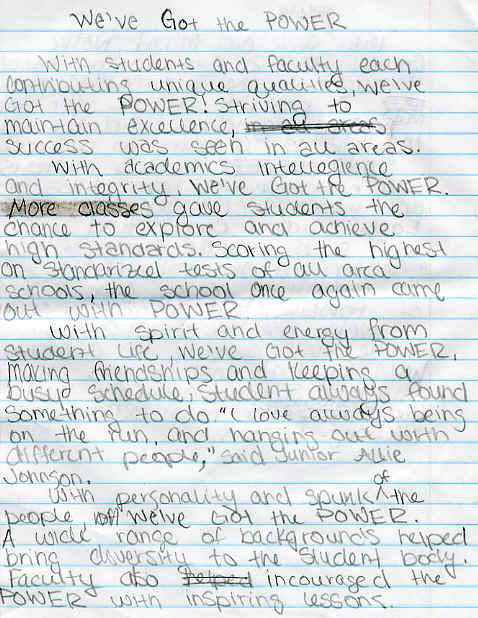 We've Got the POWER
With students and faculty each
contributing unique qualities, we've
Got the POWER! Striving to
maintain excellence, in all areas
success was seen in all areas.
With academics intellegience
and integrity, We've Got the POWER.
More classes gave students the
chance to explore and achieve
high standards. Scoring the highest
on standarized tests of all area
schools, the school once again came
out with POWER
With spirit and energy from
student life, we've Got the POWER.
Making friendships and keeping a
busy schedule, student always found
something to do. "I love always being
on the run, and hanging out with
different people," said junior Allie
Johnson.
With personality and spunk of the
people, We've Got the POWER.
A wide range of backgrounds helped
bring diversity to the student body.
Faculty also helped incouraged the
POWER with inspiring lessons.